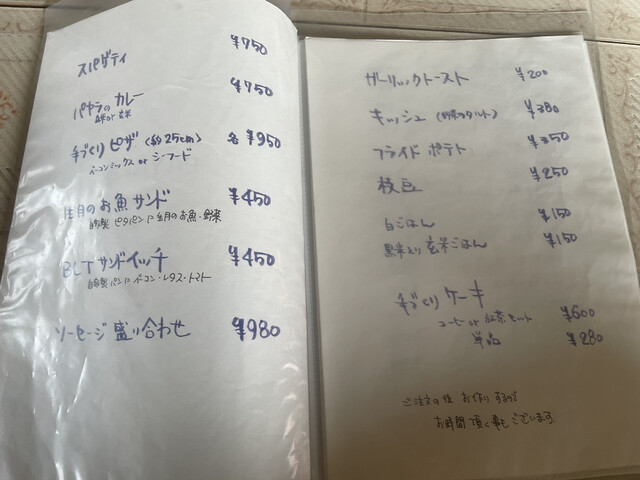 スパゲティ ¥750
パヤラの カレー ¥750
白米or玄米
手づくりピザ (約25cm) 各 ¥950
ベーコンミックス or シーフード
のお魚サンド ¥450
自家製 ピタパンに のお魚・野菜
BLTサンドイッチ ¥450
自家製パンに ベーコン・レタス・トマト
ソーセージ盛り合わせ ¥980
ガーリックトースト ¥200
キッシュ (野菜のタルト) ¥380
フライド ポテト ¥350
枝豆 ¥250
白ごはん ¥150
黒米入り 玄米ごはん ¥150
手づくりケーキ
コーヒー or 紅茶セット ¥600
単品 ¥280
ご注文の後 お作りするので
お時間頂く事もございます。